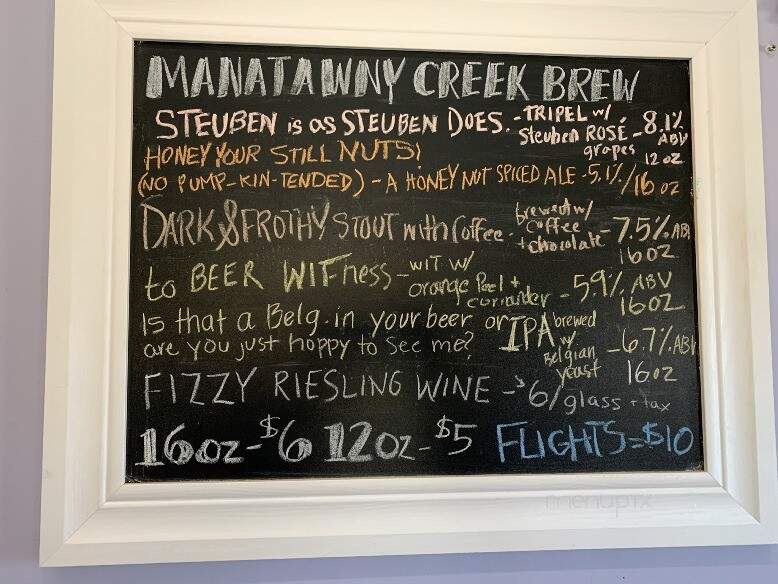 MANATAWNY CREEK BREW
STEUBEN is as STEUBEN DOES. - TRIPEL w/ Steuben ROSE grapes - 8.1% ABV 12 oz
HONEY YOUR STILL NUTS!
(NO PUMP-KIN-TENDED) - A HONEY NUT SPICED ALE - 5.1% / 16 oz
DARK & FROTHY STOUT with Coffee - brewed w/ Coffee + chocolate - 7.5% ABV 16oz
to BEER WITness - WIT w/ orange Peel + coriander - 5.9% ABV 16oz
Is that a Belg. in your beer or
are you just hoppy to see me?
IPA brewed w/ Belgian yeast - 6.7% ABV 16oz
FIZZY RIESLING WINE - $6/glass + tax
16oz - $6 12oz - $5 FLIGHTS = $10
menupix